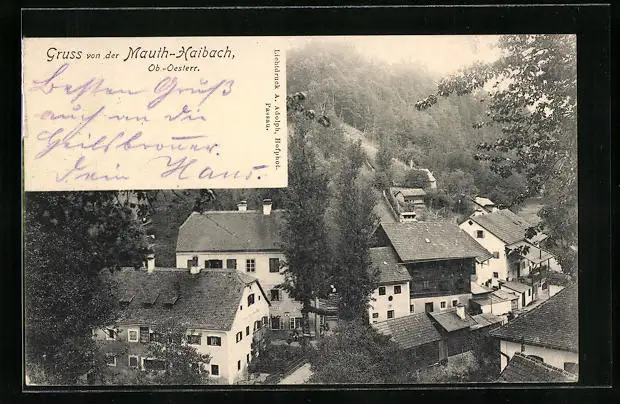 Gruss von der Mauth-Haibach,
Ob.-Oesterr.
Besten Gruß
auch an die
Heilbronner.
Dein Hans.
Lichtdruck A. Adolph, Hofphot.
Passau.